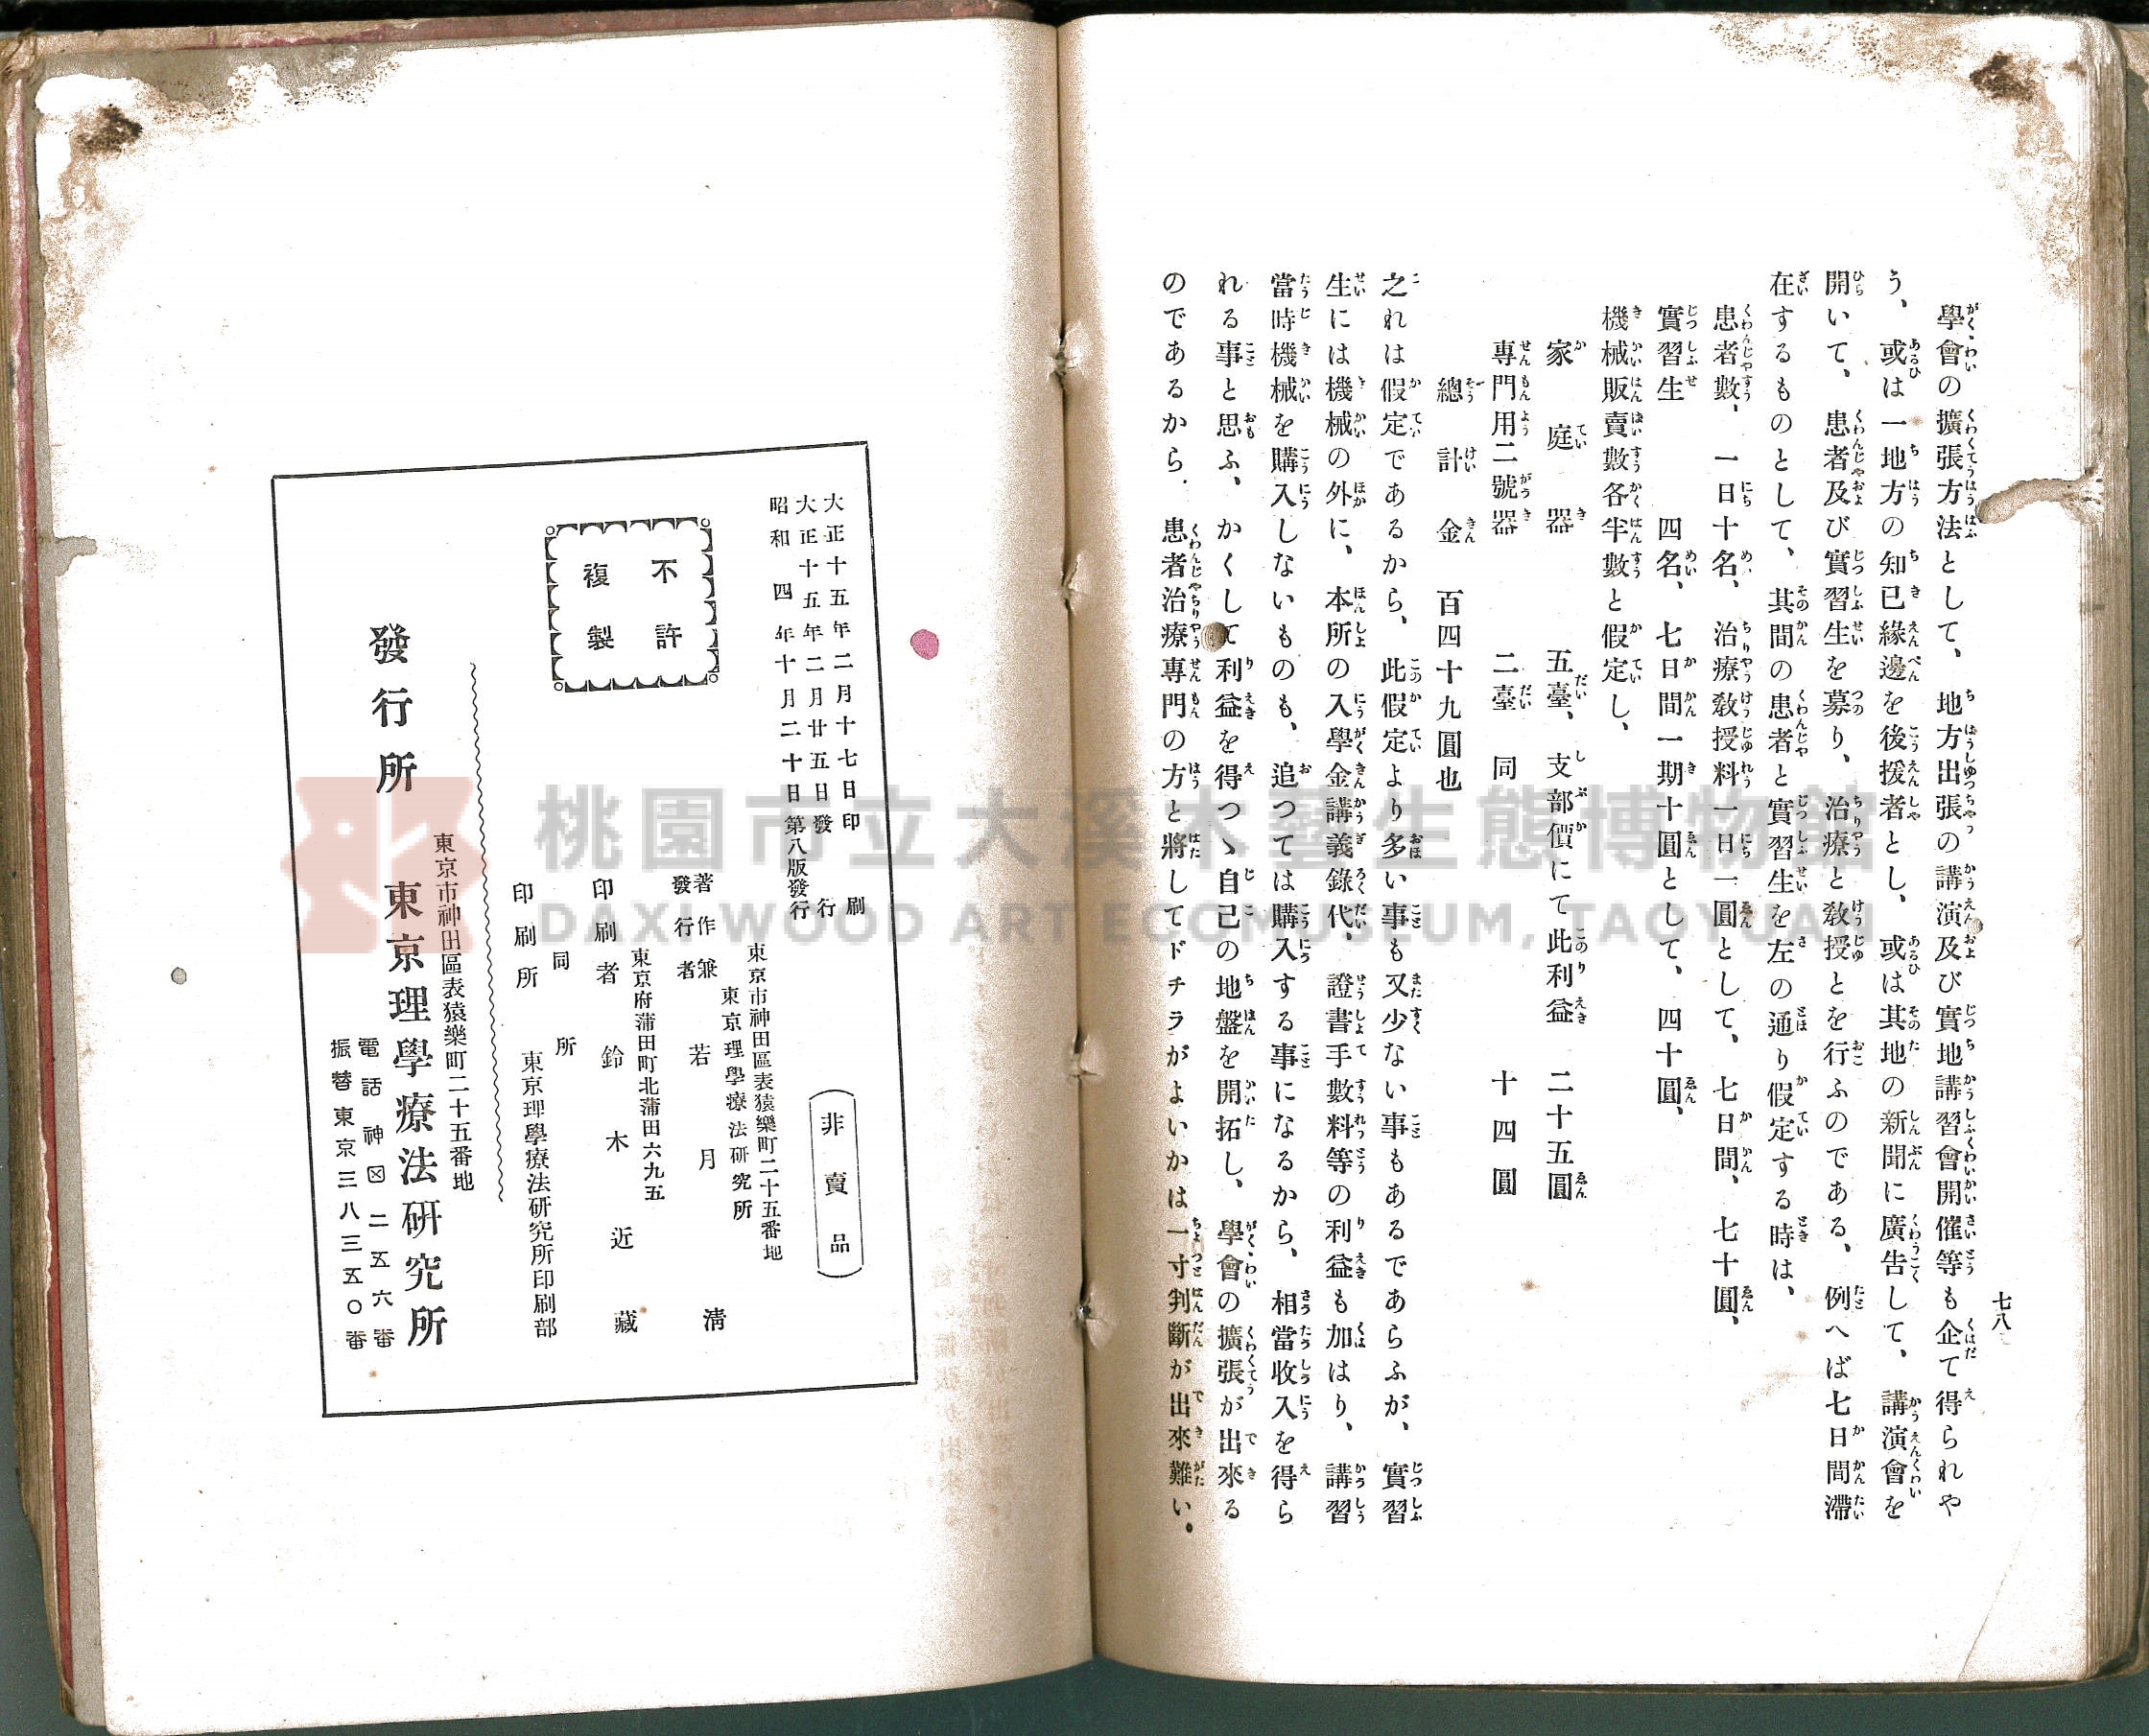 七八
學會の擴張方法として、地方出張の講演及び實地講習會開催等も企て得られや
う、或は一地方の知已緣邊を後援者とし、或は其地の新聞に廣告して、講演會を
開いて、患者及び實習生を募り、治療と敎授とを行ふのである、例へば七日間滯
在するものとして、其間の患者と實習生を左の通り假定する時は、
患者數、一日十名、治療敎授料一日一圓として、七日間、七十圓、
實習生 四名、七日間一期十圓として、四十圓、
機械販賣數各半數と假定し、
家庭器 五臺、支部價にて此利益 二十五圓
專門用二號器 二臺 同 十四圓
總計金 百四十九圓也
之れは假定であるから、此假定より多い事も又少ない事もあるであらふが、實習
生には機械の外に、本所の入學金講義錄代、證書手數料等の利益も加はり、講習
當時機械を購入しないものも、追つては購入する事になるから、相當收入を得ら
れる事と思ふ、かくして利益を得つゝ自己の地盤を開拓し、學會の擴張が出來る
のであるから、患者治療專門の方と將してドチラがよいかは一寸判斷が出來難い。
大正十五年二月十七日印刷
大正十五年二月廿五日發行
昭和四年十月二十日第八版發行
非賣品
不許
複製
東京市神田區表猿樂町二十五番地
東京理學療法研究所
著作兼
發行者 若月淸
東京府蒲田町北蒲田六九五
印刷者 鈴木近藏
同所
印刷所 東京理學療法研究所印刷部
東京市神田區表猿樂町二十五番地
發行所 東京理學療法研究所
電話神田二五六番
振替東京三八三五〇番
桃園市立大溪木藝生態博物館
DAXI WOOD ART ECOMUSEUM, TAOYUAN